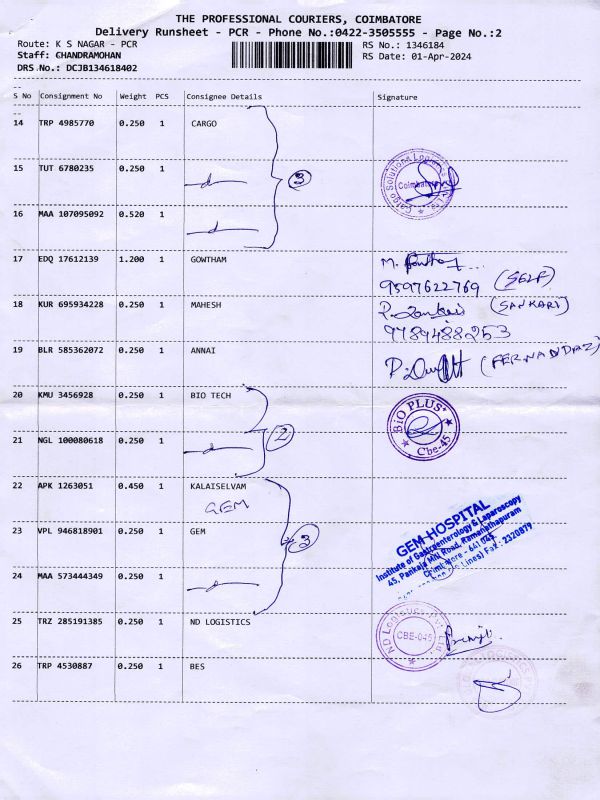 THE PROFESSIONAL COURIERS, COIMBATORE
Delivery Runsheet - PCR - Phone No.:0422-3505555 - Page No.:2
Route: K S NAGAR - PCR RS No.: 1346184
Staff: CHANDRAMOHAN RS Date: 01-Apr-2024
DRS No.: DCJB134618402
--
S No Consignment No Weight PCS Consignee Details Signature
--
14 TRP 4985770 0.250 1 CARGO
15 TUT 6780235 0.250 1
3
Cargo Solutions
Coimbatore
16 MAA 107095092 0.520 1
17 EDQ 17612139 1.200 1 GOWTHAM
9597622769 (SELF)
18 KUR 695934228 0.250 1 MAHESH
(SANKARI)
9789488253
19 BLR 585362072 0.250 1 ANNAI
(FERNANDAZ)
20 KMU 3456928 0.250 1 BIO TECH
BIO PLUS
Cbe-45
21 NGL 100080618 0.250 1
2
22 APK 1263051 0.450 1 KALAISELVAM
GEM
GEM HOSPITAL
Institute of Gastroenterology & Laparoscopy
45, Pankaja Mill Road, Ramanathapuram
Coimbatore - 641 045.
Lines) Fax : 2320879
23 VPL 946818901 0.250 1 GEM
3
24 MAA 573444349 0.250 1
25 TRZ 285191385 0.250 1 ND LOGISTICS
ND Logistics Pvt. Ltd.
CBE-045
26 TRP 4530887 0.250 1 BES